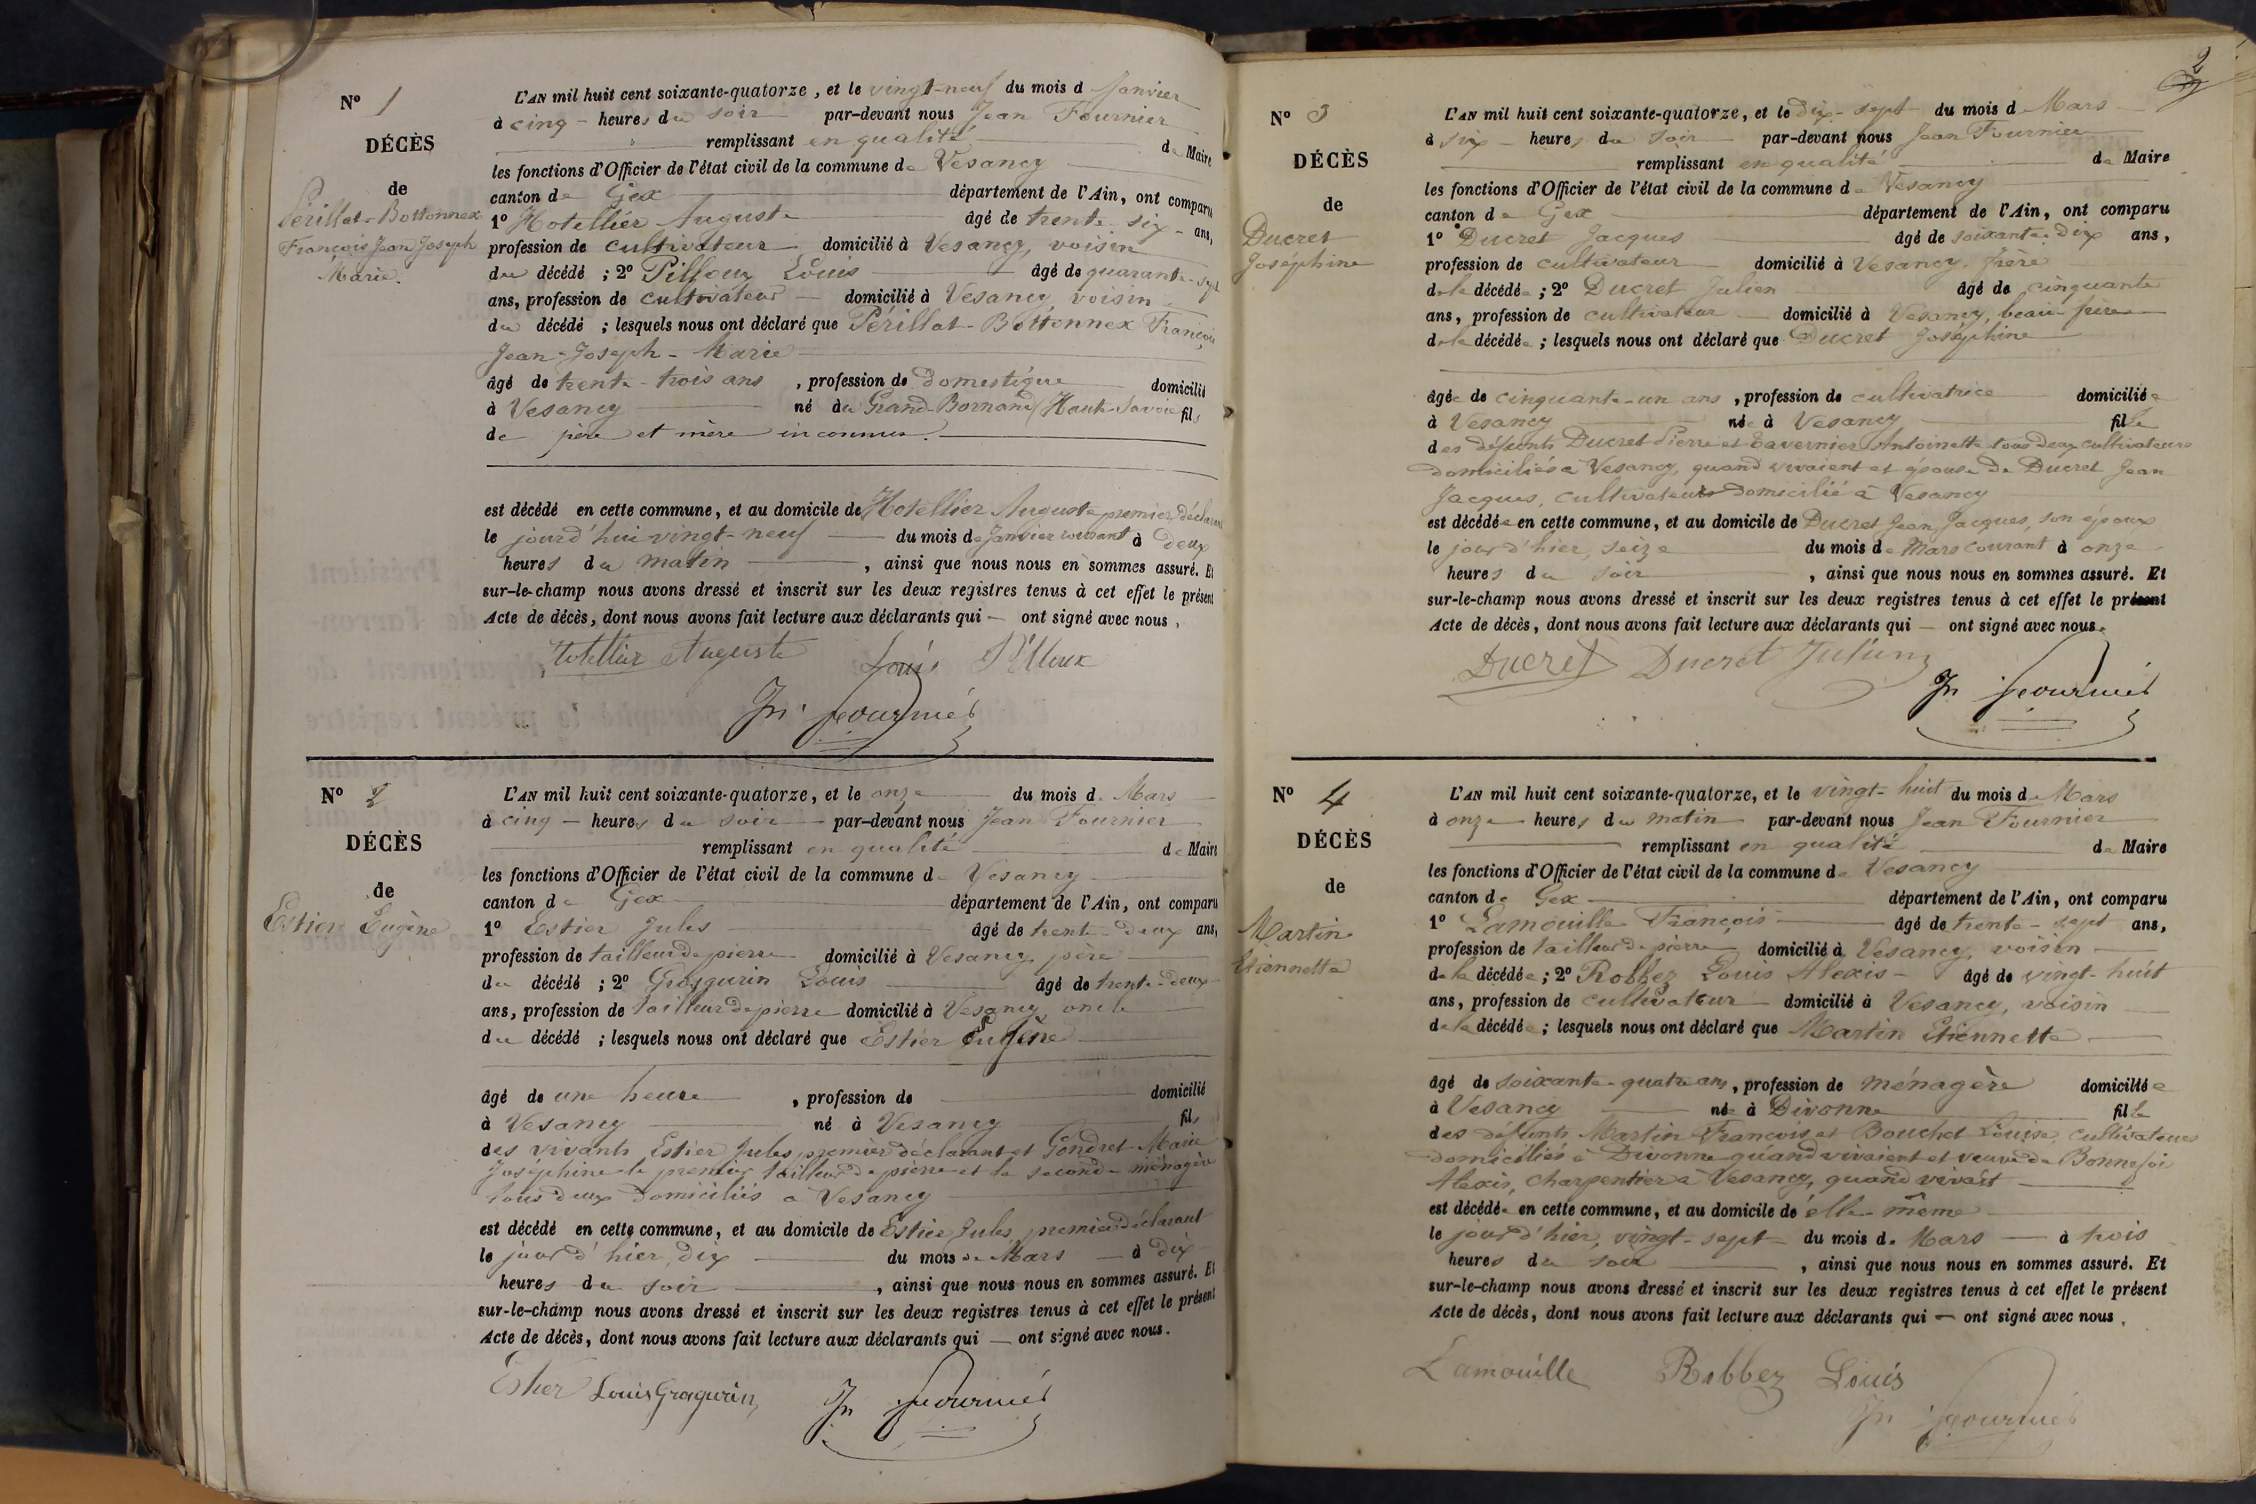 Nº 1
DÉCÈS
de
Périllat-Bottonnex
François Jean Joseph
Marie.
L'AN mil huit cent soixante-quatorze, et le vingt-neuf du mois d Janvier
à cinq heures du soir par-devant nous Jean Fournier
remplissant en qualité de Maire
les fonctions d'Officier de l'état civil de la commune de Vesancy
canton de Gex département de l'Ain, ont comparu
1º Hotellier Auguste âgé de trente-six ans,
profession de cultivateur domicilié à Vesancy, voisin
du décédé ; 2º Pilloux Louis âgé de quarante-sept
ans, profession de cultivateur domicilié à Vesancy, voisin
du décédé ; lesquels nous ont déclaré que Périllat-Bottonnex François
Jean-Joseph-Marie
âgé de trente-trois ans, profession de domestique domicilié
à Vesancy né au Grand-Bornand (Haute-Savoie fils
de père et mère inconnus.
est décédé en cette commune, et au domicile de Hotellier Auguste premier déclarant
le jourd'hui vingt-neuf du mois de Janvier courant à deux
heures du matin, ainsi que nous nous en sommes assuré. Et
sur-le-champ nous avons dressé et inscrit sur les deux registres tenus à cet effet le présent
Acte de décès, dont nous avons fait lecture aux déclarants qui — ont signé avec nous.
Hotellier Auguste Louis Pilloux
Jn Fournier
Nº 2
DÉCÈS
de
Estier Eugène
L'AN mil huit cent soixante-quatorze, et le onze du mois de Mars
à cinq heures du soir par-devant nous Jean Fournier
remplissant en qualité de Maire
les fonctions d'Officier de l'état civil de la commune de Vesancy
canton de Gex département de l'Ain, ont comparu
1º Estier Jules âgé de trente-deux ans,
profession de tailleur de pierre domicilié à Vesancy père
du décédé ; 2º Grosgurin Louis âgé de trente-deux
ans, profession de tailleur de pierre domicilié à Vesancy, oncle
du décédé ; lesquels nous ont déclaré que Estier Eugène
âgé de une heure, profession de domicilié
à Vesancy né à Vesancy fils
des vivants Estier Jules premier déclarant et Gondret Marie
Joséphine le premier tailleur de pierre et la seconde ménagère
tous deux domiciliés à Vesancy
est décédé en cette commune, et au domicile de Estier Jules, premier déclarant
le jour d'hier, dix du mois de Mars à dix
heures du soir, ainsi que nous nous en sommes assuré. Et
sur-le-champ nous avons dressé et inscrit sur les deux registres tenus à cet effet le présent
Acte de décès, dont nous avons fait lecture aux déclarants qui — ont signé avec nous.
Estier Louis Grosgurin
Jn Fournier
2
Nº 3
DÉCÈS
de
Ducret
Joséphine
L'AN mil huit cent soixante-quatorze, et le dix-sept du mois d Mars
à six heures du soir par-devant nous Jean Fournier
remplissant en qualité de Maire
les fonctions d'Officier de l'état civil de la commune de Vesancy
canton de Gex département de l'Ain, ont comparu
1º Ducret Jacques âgé de soixante-dix ans,
profession de cultivateur domicilié à Vesancy, frère
de la décédée ; 2º Ducret Julien âgé de cinquante
ans, profession de cultivateur domicilié à Vesancy, beau-frère
de la décédée ; lesquels nous ont déclaré que Ducret Joséphine
âgée de cinquante-un ans, profession de cultivatrice domiciliée
à Vesancy née à Vesancy fille
des défunts Ducret Pierre et Tavernier Antoinette tous deux cultivateurs
domiciliés à Vesancy, quand vivaient et épouse de Ducret Jean
Jacques, cultivateur domicilié à Vesancy
est décédée en cette commune, et au domicile de Ducret Jean Jacques, son époux
le jour d'hier, seize du mois de Mars courant à onze
heures du soir, ainsi que nous nous en sommes assuré. Et
sur-le-champ nous avons dressé et inscrit sur les deux registres tenus à cet effet le présent
Acte de décès, dont nous avons fait lecture aux déclarants qui — ont signé avec nous.
Ducret Ducret Julien
Jn Fournier
Nº 4
DÉCÈS
de
Martin
Etiennette
L'AN mil huit cent soixante-quatorze, et le vingt-huit du mois d Mars
à onze heures du matin par-devant nous Jean Fournier
remplissant en qualité de Maire
les fonctions d'Officier de l'état civil de la commune de Vesancy
canton de Gex département de l'Ain, ont comparu
1º Lamouille François âgé de trente-sept ans,
profession de tailleur de pierre domicilié à Vesancy, voisin
de la décédée ; 2º Robbez Louis Alexis âgé de vingt-huit
ans, profession de cultivateur domicilié à Vesancy, voisin
de la décédée ; lesquels nous ont déclaré que Martin Etiennette
âgé de soixante-quatre ans, profession de ménagère domiciliée
à Vesancy née à Divonne fille
des défunts Martin François et Bouchet Louise, cultivateurs
domiciliés à Divonne quand vivaient et veuve de Bonnefoi
Alexis, charpentier à Vesancy, quand vivait
est décédée en cette commune, et au domicile de elle-même
le jour d'hier, vingt-sept du mois de Mars à trois
heures du soir, ainsi que nous nous en sommes assuré. Et
sur-le-champ nous avons dressé et inscrit sur les deux registres tenus à cet effet le présent
Acte de décès, dont nous avons fait lecture aux déclarants qui — ont signé avec nous.
Lamouille Robbez Louis
Jn Fournier